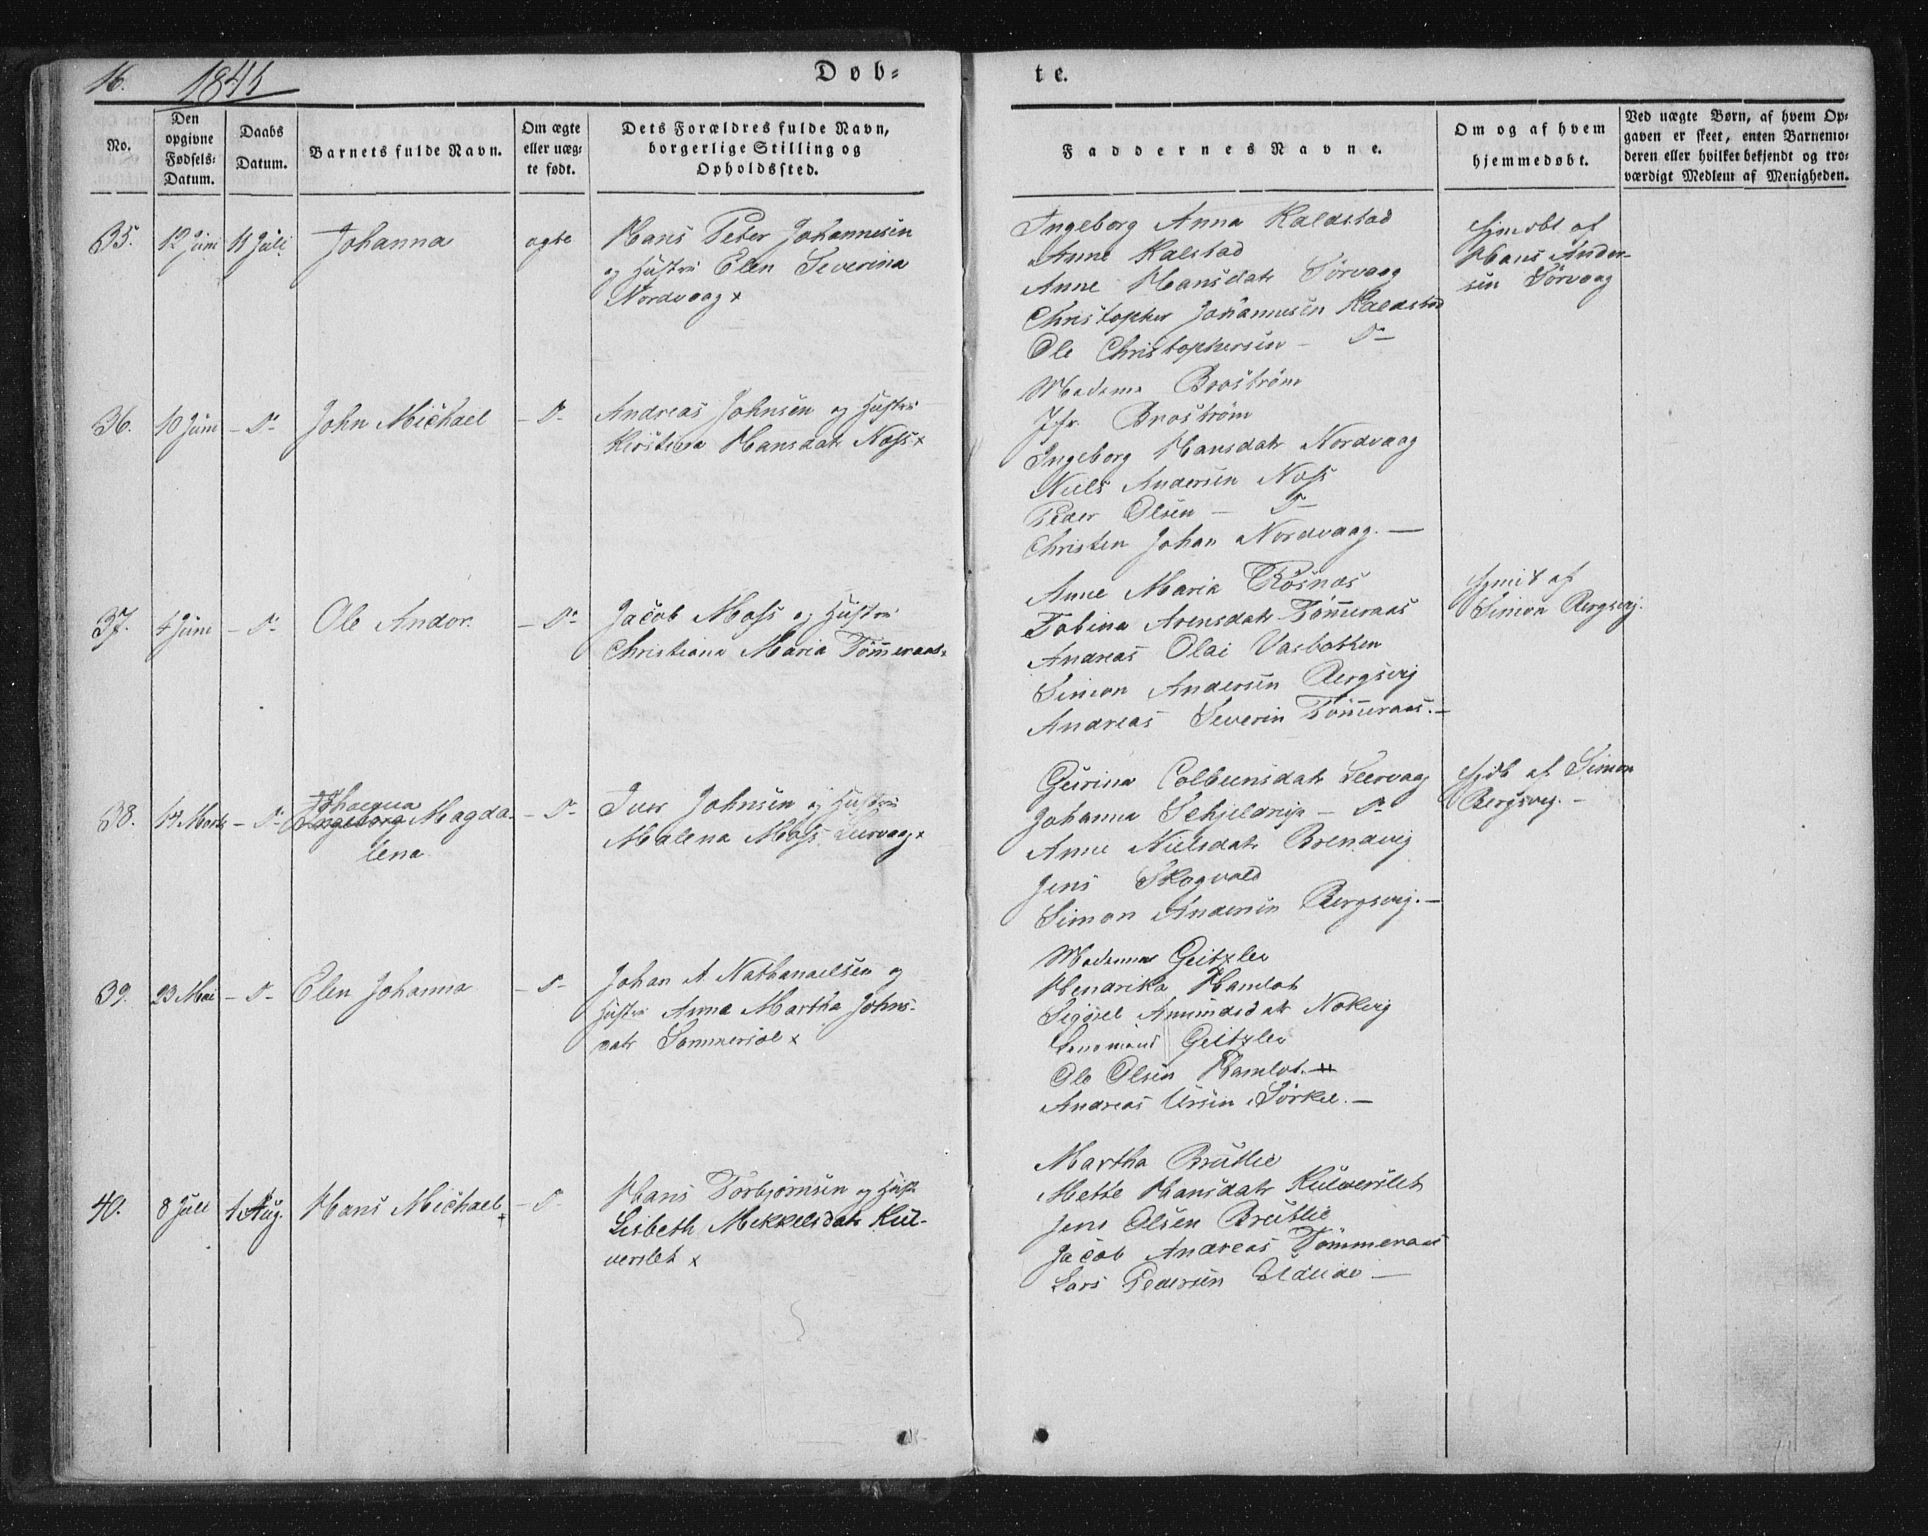 16. 1841
Døb-
te.
No.
Den opgivne Fødsels-Datum.
Daabs Datum.
Barnets fulde Navn.
Om ægte eller uægte født.
Dets Forældres fulde Navn, borgerlige Stilling og Opholdssted.
Faddernes Navne.
Om og af hvem hjemmedøbt.
Ved uægte Børn, af hvem Opgaven er skeet, enten Barnemoderen eller hvilket bekjendt og troværdigt Medlem af Menigheden.
35. 12 Juni 11 Juli Johanna ægte
Hans Peter Johannesen
og Hustru Elen Severina
Nordvaag x
Ingeborg Anna Kaldstad
Anne Kalstad
Anne Hansdatr Sörvaag
Christopher Johannesen Kaldstad
Ole Christophersen - Do
Hjmdbt af
Hans Ander-
sen Sörvaag
36. 10 Juni - Do John Michael - Do
Andreas Johnsen og Hustru
Kirstina Hansdatr Nöss x
Madame Broström
Jfr. Broström
Ingeborg Hansdatr Nordvaag
Niels Andersen Nöss
Peder Olsen - Do
Christen Johan Nordvaag. -
37. 4 Juni - Do Ole Andor. - Do
Jacob Moss og Hustru
Christiana Maria Tömmeraas x
Anne Maria Rösnæs
Tobina Arensdatr Tömmeraas
Andreas Olai Vasbotten
Simon Andersen Bergsvig
Andreas Severin Tömmeraas. -
af
Simon Bergsvig.
38. 14 Marts - Do Ingeborg Magda-
lena - Do
Iver Johnsen og Hustru
Malena Moss Leervaag x
Gurina Colbensdatr Leervaag
Johanna - Do
Anne Nielsdatr Brendvig
Jens Skogvold
Simon Andersen Bergsvig. -
Hjdb af Simon
Bergsvig. -
39. 23 Mai - Do Elen Johanna - Do
Johan A Nathanaelsen og
Hustru Anna Martha Johns-
datr Sommersæl x
Madame Geitzler
Hendrika Hamlot
Amundsdatr Nokvig
Geitzler
Ole Olsen Hamlot. -
Andreas Ursin Sörkil. -
40. 8 Juli 1 Aug. Hans Michael - Do
Hans Torbjörnsen og Hust
Lisbeth Mikkelsdatr Kul-
verslet x
Martha Brutlie
Mette Hansdatr Kulverslet
Jens Olsen Brutlie
Jacob Andreas Tömmeraas
Lars Pedersen Eldeide -